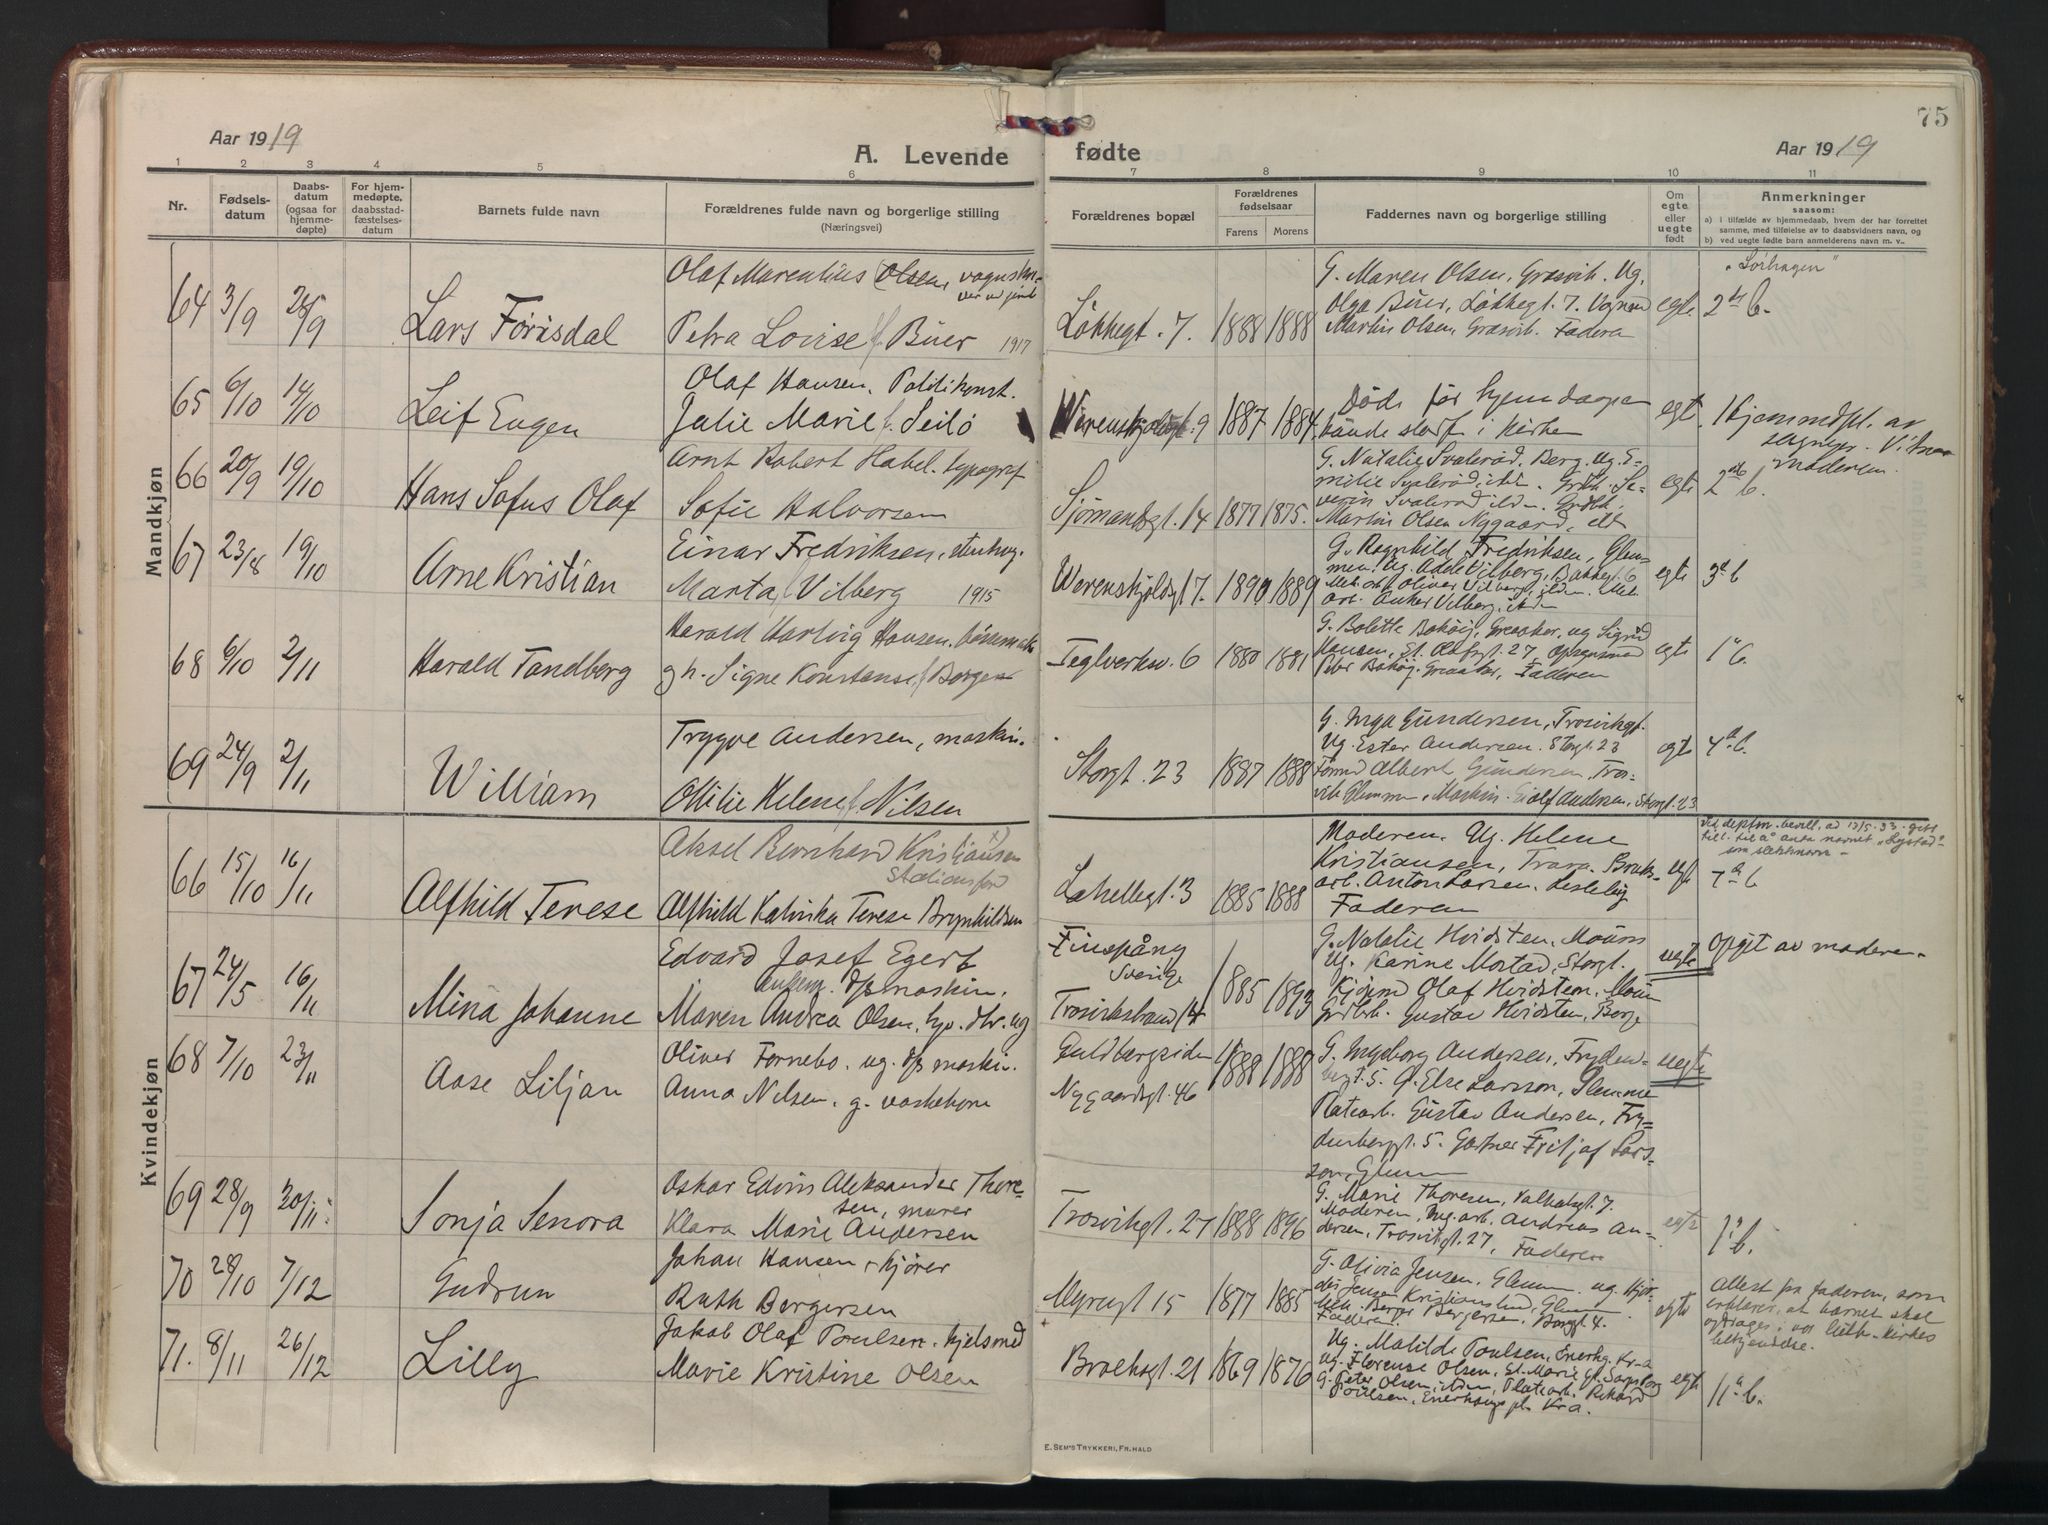 75
Aar 1919
A. Levende fødte
Aar 1919
1 2 3 4 5 6 7 8 9 10 11
Nr.
Fødsels-
datum
Daabs-
datum
(ogsaa for
hjemme-
døpte)
For hjem-
medøpte,
daabsstad-
fæstelses-
datum
Barnets fulde navn
Forældrenes fulde navn og borgerlige stilling
(Næringsvei)
Forældrenes bopæl
Forældrenes
fødselsaar
Farens Morens
Faddernes navn og borgerlige stilling
Om
egte
eller
uegte
født
Anmerkninger
saasom:
a) i tilfælde av hjemmedaab, hvem der har forrettet
samme, med tilføielse av to daabsvidners navn, og
b) ved uegte fødte barn anmelderens navn m. v..
Mandkjøn
64 3/9 28/9
Lars Förisdal
Olaf Marentius Olsen,
Petra Lovise f. Büer 1917
Løkkegt. 7. 1888 1888
G. Maren Olsen, Græsvik. Ug.
Olga Büer, Løkkegt. 7.
Martin Olsen, Græsvik. Fadern
egte
"Sörhagen"
2 b.
65 6/10 14/10
Leif Eugen
Olaf Hansen. Politikonst.
Julie Marie f. Seilö
Werenskjoldgt. 9 1887 1884.
Døde før hjemdaapen
kunde stadf. i kirke
egte
Hjemmedøpt av
moderen.
66 20/9 19/10
Hans Sofus Olaf
Arnt Robert Habel. typograf
Sofie Halvorsen
Sjömandsgt. 14 1877 1875.
G. Natalie Svalerød. Berg. Ug. E-
milie Svalerød,
verin Svalerød
Martin Olsen Nygaard,
egte
2 b.
67 23/8 19/10
Arne Kristian
Einar Fredriksen. stenhug.
Marta f. Vilberg 1915
Werenskjoldgt 7. 1890 1889
G. Ragnhild Fredriksen, Glem-
men. Ug. Vilberg, Bakkegt. 6
Mek. arb. Oliver Vilberg,
arb. Anker Vilberg.
egte
3 b
68 6/10 2/11
Harald Tandberg
Harald Hartvig Hansen.
gh. Signe Konstanse f. Borgen
Teglverksv. 6 1880 1881
G. Bolette Bakøy, Greaaker, ug Sigrid
Hansen, St. Olafsgt. 27
Peter Bakøy. Greaaker, Faderen
egte
1 b.
69 24/9 2/11
William
Trygve Andersen, maskin.
Ottilie Helene f. Nilsen
Storgt. 23 1887 1888
G. Inga Gundersen, Trosvikgt.
Ug. Ester Andersen. Storgt. 23
Formd Albert Gundersen. Tros-
vik Glemmen, Maskin. Eiolf Andersen, Storgt. 23
egte
4 b.
Kvindekjøn
66 15/10 16/11
Alfhild Terese
Aksel Bernhard Kristiansen x)
Stationsford
Alfhild Katinka Terese Brynhildsen
Lahellegt. 3 1885 1888
Moderen. Ug. Helene
Kristiansen, Trara. Bruks-
arb. Anton Larsen. Lisleby
Faderen
egte
Ved deptm. bevill. ad 13/5.33. gitt
till. til å anta navnet "Lystad"
som slektsnavn -
7 b
67 24/5 16/11
Mina Johanne
Edvard Josef Egert
maskin.
Maren Andrea Olsen,
Finspång
Sverige
Trosvikstrand 14 1885 1893
G. Natalie Hvidsten. Moum
Ug. Karine Mostad, Storgt.
Kjøpmd Olaf Hvidsten. Moum
Gustav Hvidsten, Borge
uegte
Opgit av moderen.
68 7/10 23/11
Aase Liljan
Oliver Fornebo. ug. maskin.
Anna Nilsen. g. vaskekone
Guldbergsiden 11
Nygaardsgt. 46 1888 1888
G. Ingeborg Andersen, Fryden-
bergt. 5. G. Else Larsson, Glemmen
Platearb. Gustav Andersen, Fry-
denbergt. 5. Gartner Fritjof Lars-
son, Glemm
uegte
69 28/9 30/11
Sonja Senora
Oskar Edvin Aleksander Thore-
sen, murer
Klara Marie Andersen
Trosvikgt. 27 1888 1896
G. Marie Thoresen, Valhalgt. 7.
Moderen, arb. Andreas An-
dersen, Trosvikgt. 27, Faderen
egte
1 b.
70 28/10 7/12
Gudrun
Johan Hansen, kjører
Ruth Bergersen
Myragt 15 1877 1885
G. Olivia Jensen, Glemm. ug. Hjør-
dis Jensen Kristianslund, Glemm
Mek. Berger Bergersen, Borggt. 4.
Faderen
egte
Attest fra faderen, som
erklærer, at barnet skal
opdrages i vor luth. kirkes
bekjendelse.
71. 8/11 26/12
Lilly
Jakob Olaf Poulsen. kjelsmed
Marie Kristine Olsen
Brochsgt. 21 1869 1876
Ug. Matilde Poulsen, Enerhg. Kr-a
Ug. Florense Olsen, St. Marie gt. Sarpsborg
G. Peter Olsen, Platearb. Rikard
Poulsen, Enerhaugspl. Kra.
egte
11 b.
E. SEM'S TRYKKERI, FR.HALD